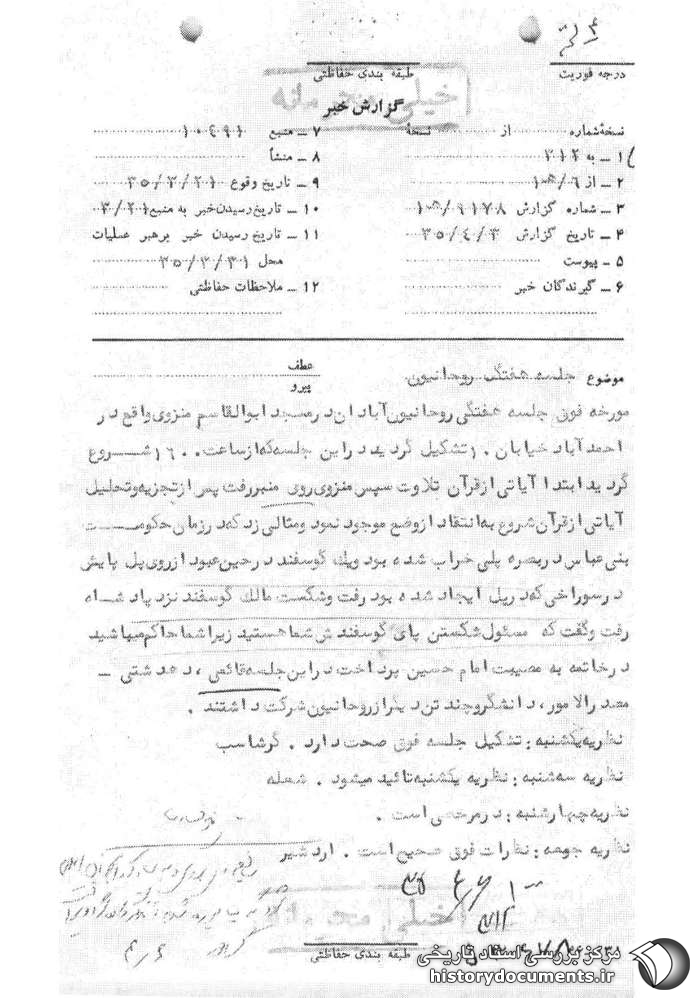 درجه فوریت
طبقه بندی حفاظتی
خیلی محرمانه
گزارش خبر
نسخهٔ شماره .......... از .......... نسخهٔ
۱ ــ به ۳۱۲
۲ ــ از
۳ ــ شماره گزارش
۴ ــ تاریخ گزارش ۳۵/۴/۳
۵ ــ پیوست
۶ ــ گیرندگان خبر
۷ ــ منبع ۱۰۴۹۱
۸ ــ منشأ
۹ ــ تاریخ وقوع ۳۵/۳/۲۱
۱۰ ــ تاریخ رسیدن خبر به منبع
۱۱ ــ تاریخ رسیدن خبر برهبر عملیات
محل
۱۲ ــ ملاحظات حفاظتی
موضوع جلسه هفتگی روحانیون
عطف
پیرو
مورخه فوق جلسه هفتگی روحانیون آبادان در مسجد ابوالقاسم منزوی واقع در
احمدآباد خیابان ۱۰ تشکیل گردید در این جلسه که از ساعت ۱۶۰۰ شروع
گردید ابتدا آیاتی از قرآن تلاوت سپس منزوی روی منبر رفت پس از تجزیه و تحلیل
آیاتی از قرآن شروع به انتقاد از وضع موجود نمود و مثالی زد که در زمان حکومت
بنی عباس در بصره پلی خراب شده بود و یک گوسفند در حین عبور از روی پل پایش
در سوراخی که در پل ایجاد شده بود رفت و شکست مالک گوسفند نزد پادشاه
رفت و گفت که مسئول شکستن پای گوسفندش شما هستید زیرا شما حاکم میباشید
در خاتمه به مصیبت امام حسین پرداخت در این جلسه قائمی ، دهدشتی ــ
صدرالامور ، دانشگر و چند تن دیگر از روحانیون شرکت داشتند .
نظریه یکشنبه : تشکیل جلسه فوق صحت دارد . گرشاسب
نظریه سه شنبه : نظریه یکشنبه تائید میشود . شعله
نظریه چهارشنبه : در مرخصی است .
نظریه جمعه : نظرات فوق صحیح است . اردشیر
خیلی محرمانه
طبقه بندی حفاظتی
مرکز بررسی اسناد تاریخی
historydocuments.ir